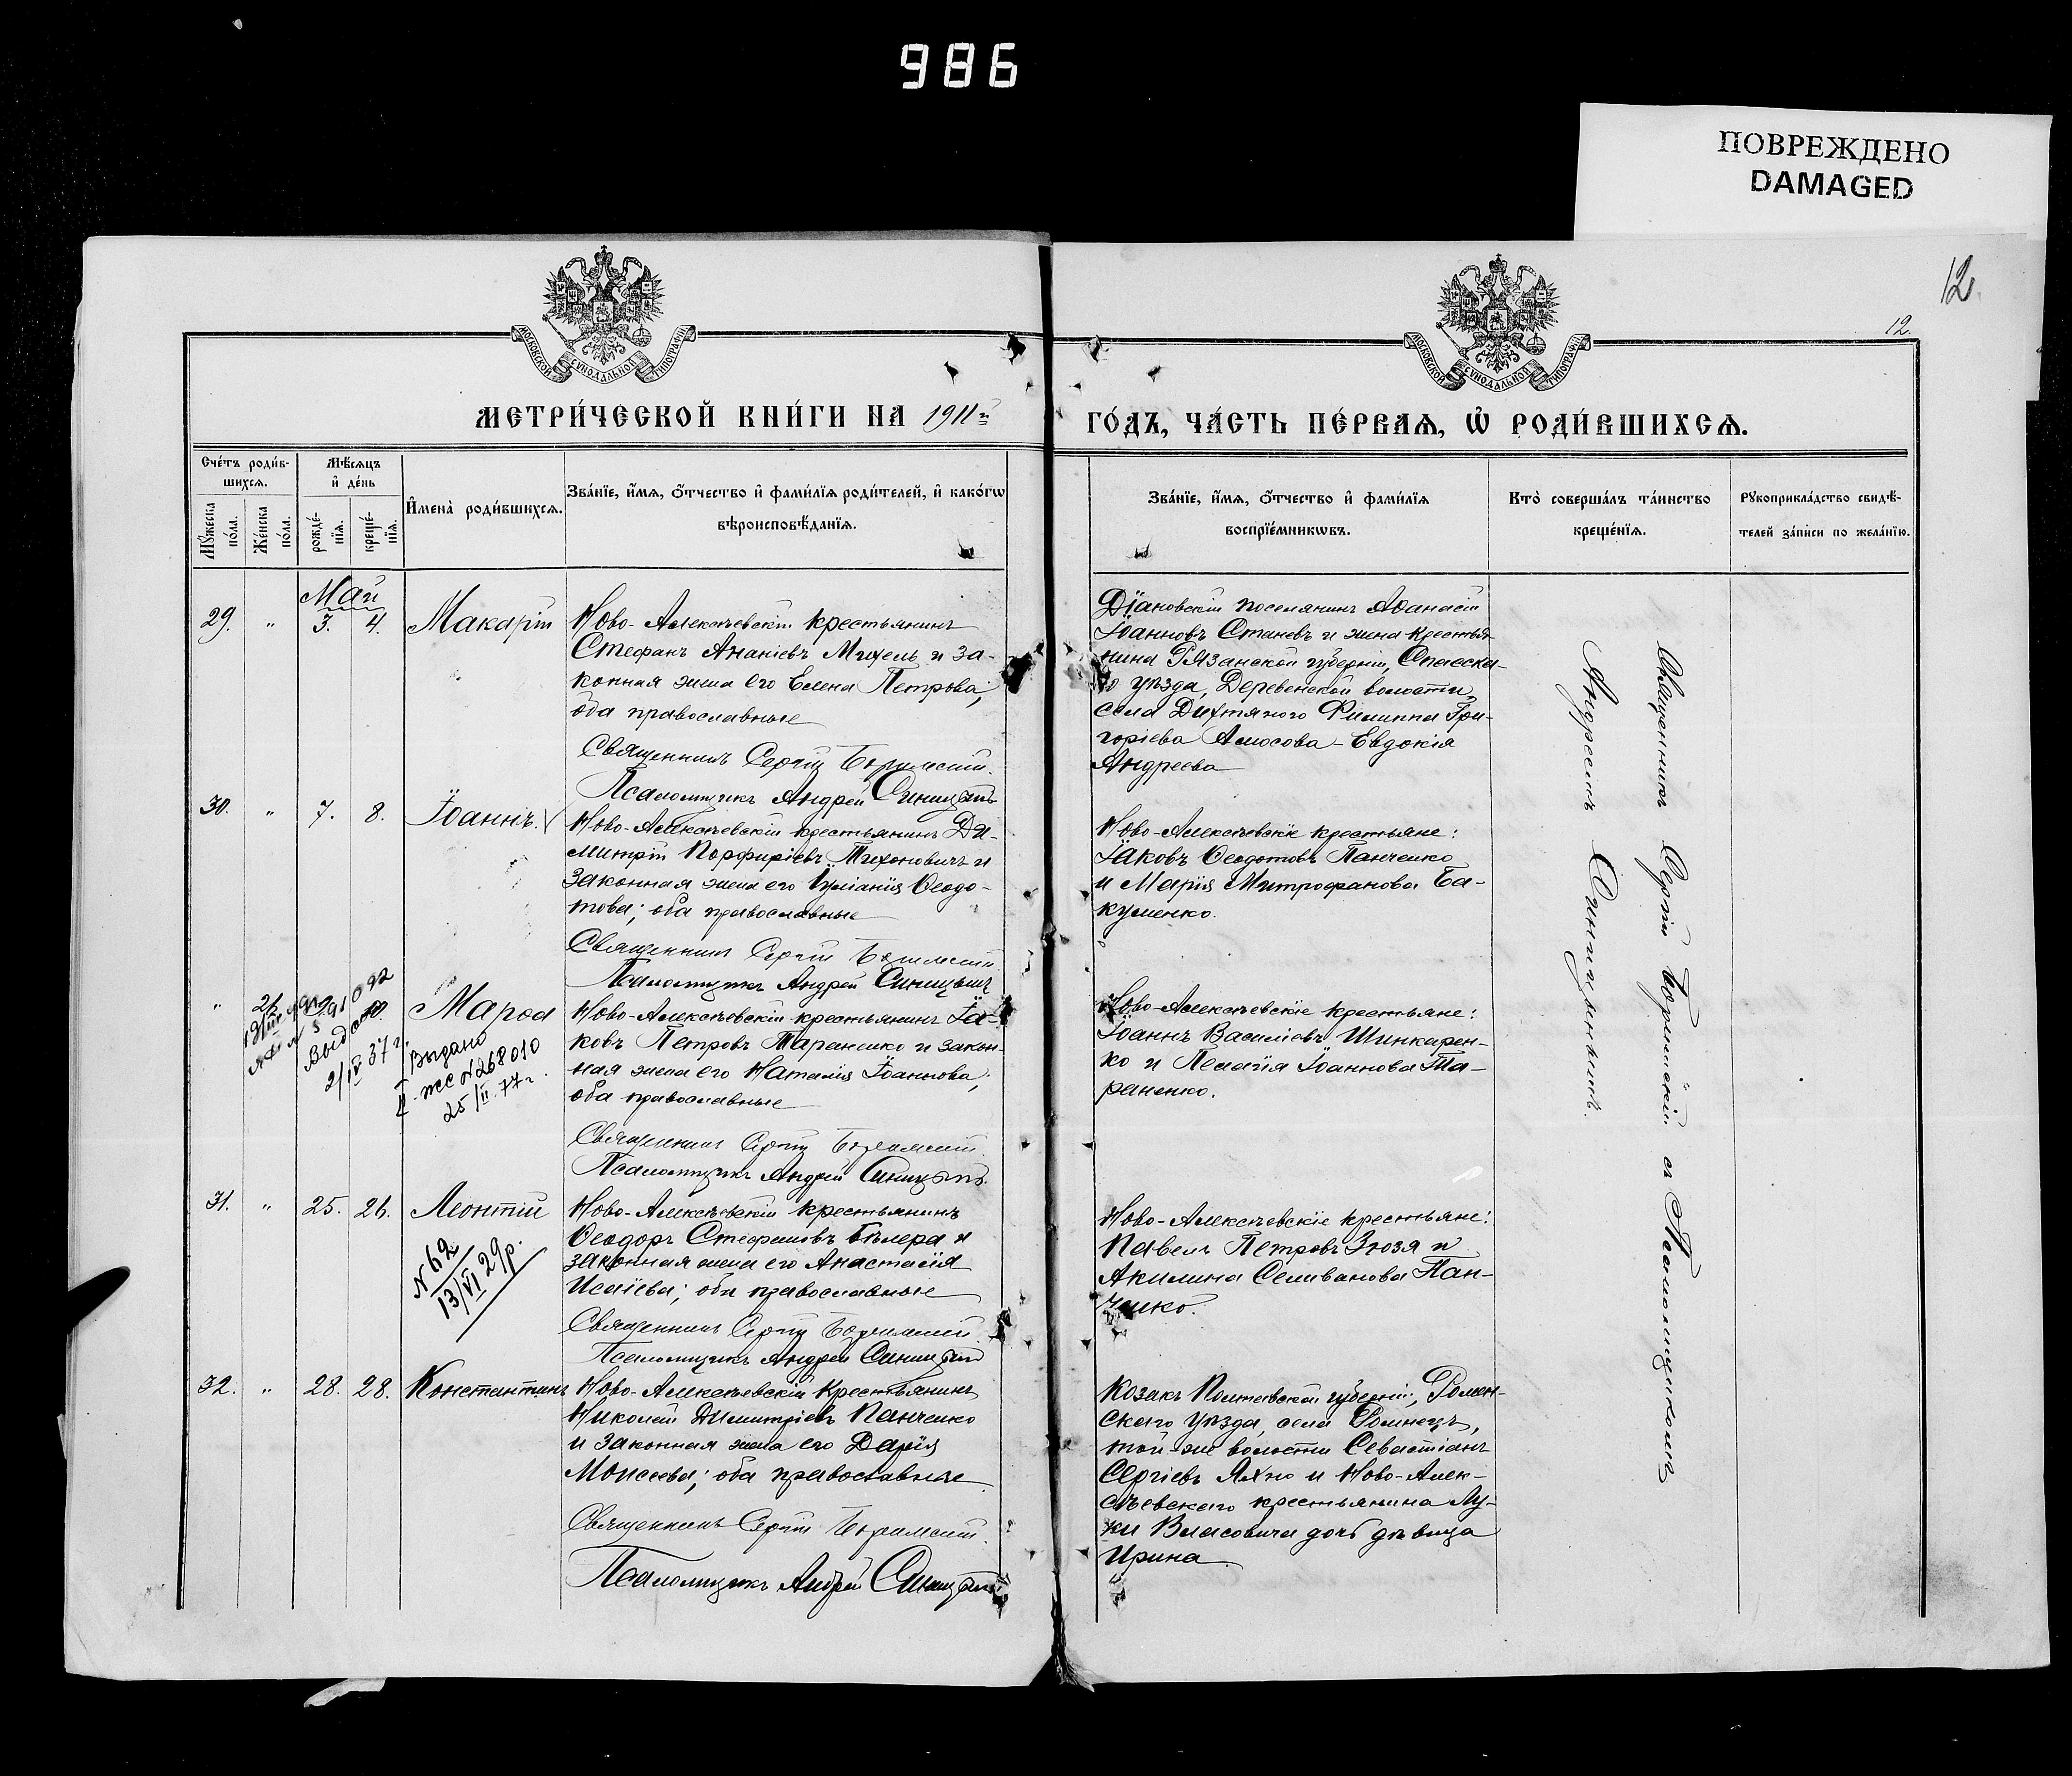 986
ПОВРЕЖДЕНО
DAMAGED
12
12.
МОСКОВСКОЙ СѴНОДАЛЬНОЙ ТИПОГРАФІИ
МОСКОВСКОЙ СѴНОДАЛЬНОЙ ТИПОГРАФІИ
МЕТРИ́ЧЕСКОЙ КНИ́ГИ НА 1911й
ГО́ДЪ, ЧА́СТЬ ПЕ́РВАѦ, Ѽ РОДИ́ВШИХСѦ.
Сче́тъ роди́в-
шихсѧ.
Мѣ́сѧцъ
и҆ де́нь
Мꙋ́жеска
по́ла.
Же́нска
по́ла.
рожде́-
нїѧ.
креще́-
нїѧ.
И҆мена̀ роди́вшихсѧ.
Зва́нїе, и҆́мѧ, ѻ҆́тчество и҆ фами́лїѧ роди́телей, и҆ како́гѡ
вѣроисповѣ́данїѧ.
Зва́нїе, и҆́мѧ, ѻ҆́тчество и҆ фами́лїѧ
воспрїе́мникѡвъ.
Кто̀ соверша́лъ та́инство
креще́нїѧ.
Рꙋкоприкла́дство свидѣ́-
телей за́писи по жела́нїю.
Май
29. " 3. 4. Макарій
Ново-Алексѣевскій крестьянинъ
Стефанъ Ананіевъ Михель и за-
конная жена его Елена Петрова;
оба православные
Священникъ Сергій
Псаломщикъ Андрей Синицынъ
Діановскій поселянинъ Аѳанасій
Іоанновъ Станевъ и жена крестья-
нина Рязанской губерніи, Спасска-
го уѣзда, Деревенской волости,
села Дихтяного Филиппа Гри-
горіева Амосова - Евдокія
Андреева
30. " 7. 8. Іоаннъ. V
Ново-Алексѣевскій крестьянинъ Ди-
митрій Порфиріевъ Тихоновичъ и
законная жена его Іуліанія Ѳеодо-
това; оба православные
Священникъ Сергій
Псаломщикъ Андрей Синицынъ
Ново-Алексѣевскіе крестьяне:
Іаковъ Ѳеодотовъ Панченко
и Марія Митрофанова Ба-
куменко.
" Марѳа
Выдано
2/IV 37 г.
Выдано
II - же N 268010
25/II.77 г.
Ново-Алексѣевскій крестьянинъ Іа-
ковъ Петровъ Тараненко и закон-
ная жена его Наталія Іоаннова,
оба православные
Священникъ Сергій
Псаломщикъ Андрей Синицынъ.
Ново-Алексѣевскіе крестьяне:
Іоаннъ Василіевъ Шинкарен-
ко и Пелагія Іоаннова Та-
раненко.
31. " 25. 26. Леонтій
N 62
13/VI 29 р.
Ново-Алексѣевскій крестьянинъ
Ѳеодоръ Стефановъ Бѣлера и
законная жена его Анастасія
Исаіева; оба православные
Священникъ Сергій
Псаломщикъ Андрей Синицынъ
Ново-Алексѣевскіе крестьяне:
Павелъ Петровъ Зюзя и
Акилина Селиванова Пан-
ченко.
32. " 28. 28. Константинъ
Ново-Алексѣевскій крестьянинъ
Николай Димитріевъ Панченко
и законная жена его Дарія
Моисеева; оба православные
Священникъ Сергій
Псаломщикъ Андрей Синицынъ
Козакъ Полтавской губерніи, Ромен-
скаго уѣзда, села Роминецъ,
той же волости Севастіанъ
Сергіевъ Яхно и Ново-Алек-
сѣевскаго крестьянина Лу-
ки Власовича дочь дѣвица
Ирина
Священникъ Сергій съ Псаломщикомъ
Андреемъ Синицынымъ.